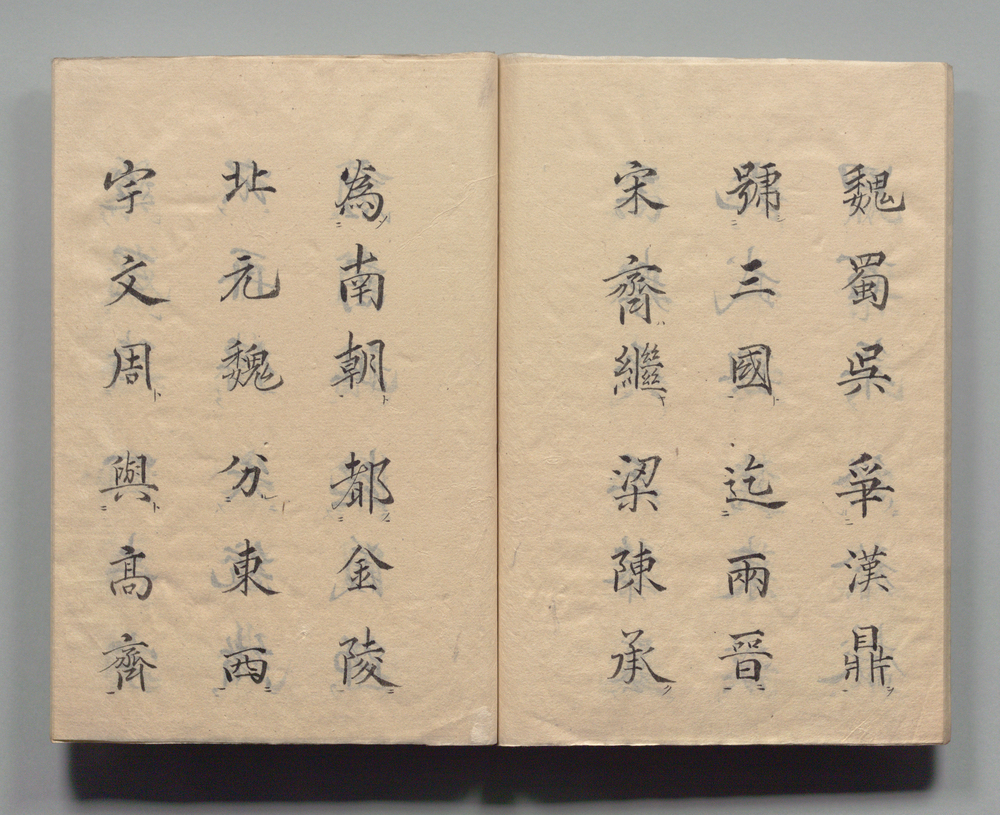 魏蜀吳爭漢鼎
號三國迄兩晉
宋齊繼梁陳承
為南朝都金陵
北元魏分東西
宇文周與高齊